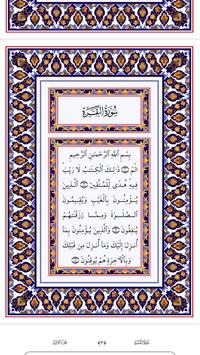 سُورَةُ الْبَقَرَةِ
بِسْمِ اللَّهِ الرَّحْمَٰنِ الرَّحِيمِ
الٓمٓ ۝ ذَٰلِكَ الْكِتَٰبُ لَا رَيْبَ
فِيهِ هُدًى لِّلْمُتَّقِينَ ۝ الَّذِينَ
يُؤْمِنُونَ بِالْغَيْبِ وَيُقِيمُونَ
الصَّلَوٰةَ وَمِمَّا رَزَقْنَٰهُمْ
يُنفِقُونَ ۝ وَالَّذِينَ يُؤْمِنُونَ بِمَا
أُنزِلَ إِلَيْكَ وَمَا أُنزِلَ مِن قَبْلِكَ
وَبِالْآخِرَةِ هُمْ يُوقِنُونَ ۝